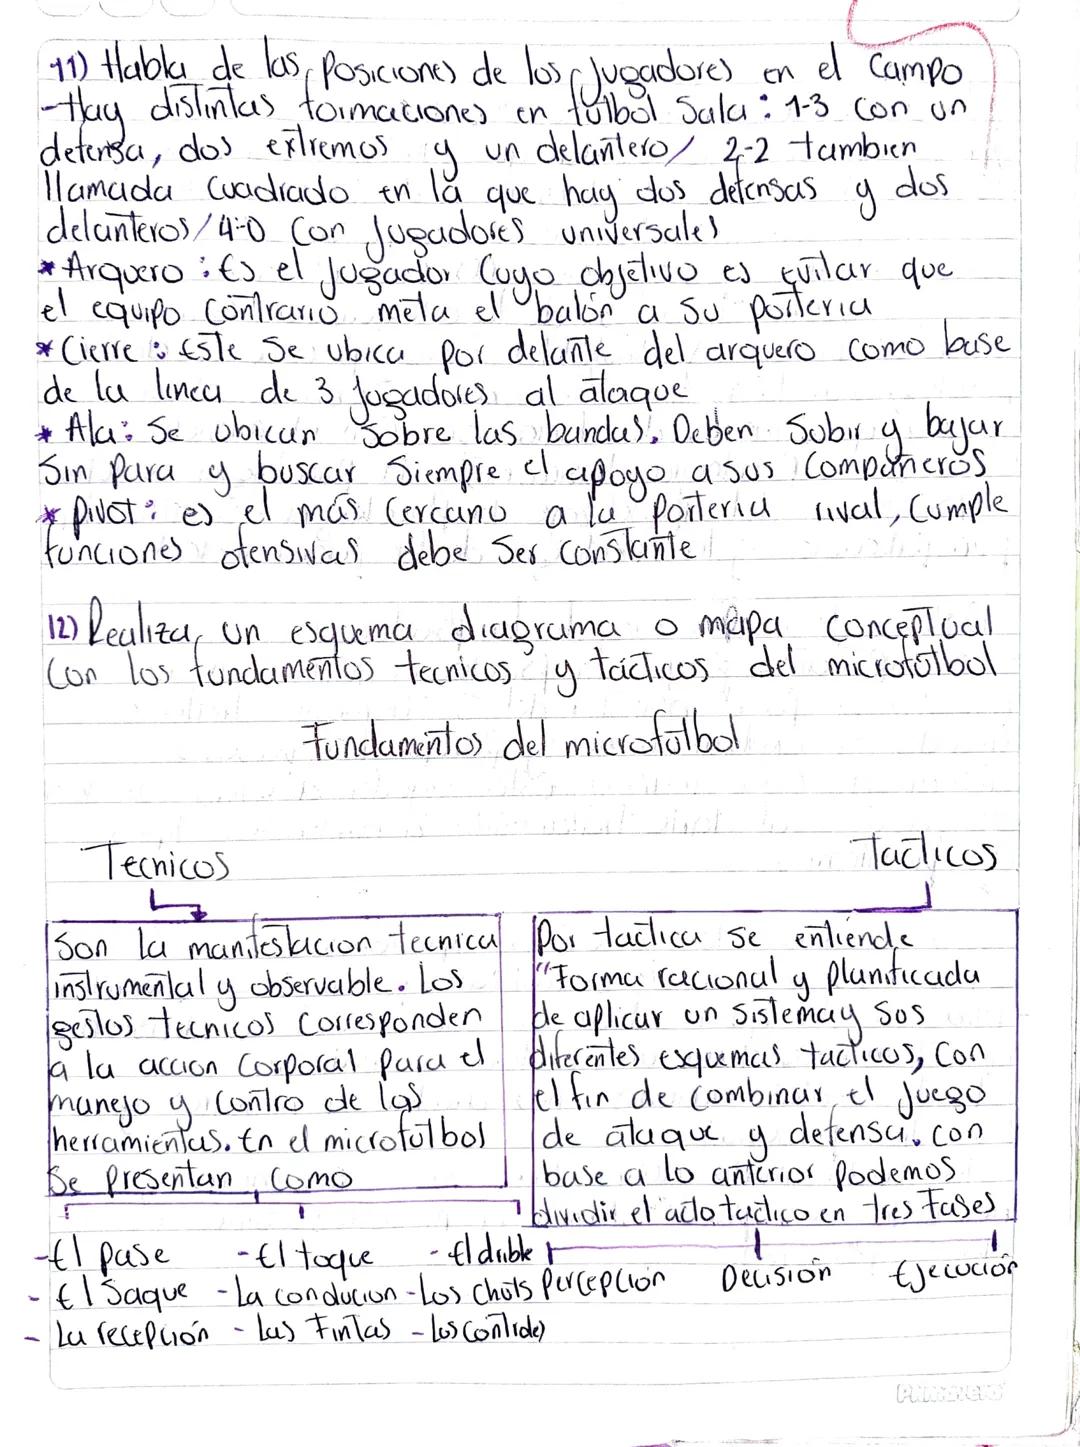 11) Habla de las posiciones de los jugadores en el campo
-Hay distintas formaciones en fútbol sala: 1-3 con un
defensa, dos extremos y un delantero/ 2-2 tambien
llamada cuadrado en la que hay dos defensas y dos
delanteros/4-0 con jugadores universales
* Arquero: Es el jugador cuyo objetivo es evitar que
el equipo contrario meta el balón a su porteria
* Cierre: Este se ubica por delante del arquero como base
de la linea de 3 jugadores al ataque
* Ala: Se ubican sobre las bandas. Deben subir y bajar
sin para y buscar siempre el apoyo a sus compañeros
* Pivot: es el más cercano a la porteria rival, cumple
funciones ofensivas debe ser constante
12) Realiza un esquema diagrama o mapa conceptual
con los fundamentos tecnicos y tácticos del microfútbol
Fundamentos del microfútbol
Tecnicos
Tacticos
Son la manifestacion tecnica
instrumental y observable. Los
gestos tecnicos corresponden
a la accion corporal para el
manejo y contro de las
herramientas. En el microfútbol
se presentan como
-El pase -El toque -El drible
- El Saque -La conducion -Los chuts
- La recepción - Las Fintas - Los controles
Por tactica se entiende
"Forma racional y planificada
de aplicar un sistema y sus
diferentes esquemas tacticos, con
el fin de combinar el juego
de ataque y defensa. con
base a lo anterior podemos
dividir el acto tactico en tres fases
Percepcion Decisión Ejecución
PRIMAVERA